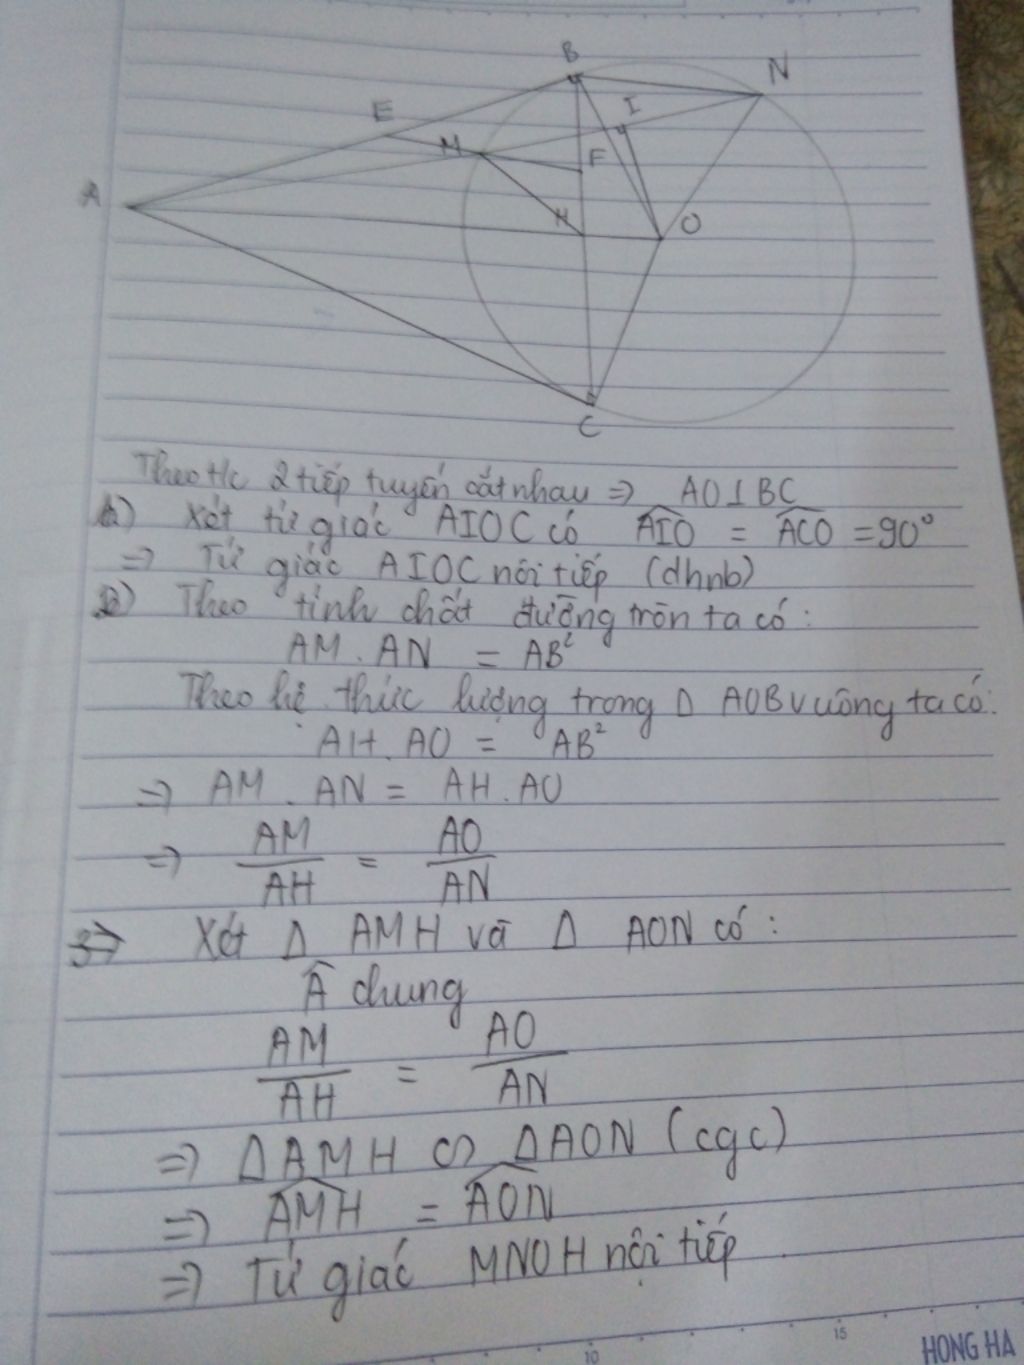 B
N
E
I
M
F
A
H
O
C
Theo t/c 2 tiếp tuyến cắt nhau => AO⊥BC
a) Xét tứ giác AIOC có \widehat{AIO} = \widehat{ACO} = 90°
=> Tứ giác AIOC nội tiếp (dhnb)
b) Theo tính chất đường tròn ta có:
AM . AN = AB²
Theo hệ thức lượng trong Δ AOB vuông ta có:
AH . AO = AB²
=> AM . AN = AH . AO
=> AM/AH = AO/AN
=> Xét Δ AMH và Δ AON có:
Â chung
AM/AH = AO/AN
=> ΔAMH ∽ ΔAON (cgc)
=> \widehat{AMH} = \widehat{AON}
=> Tứ giác MNOH nội tiếp
10
15
HONG HA